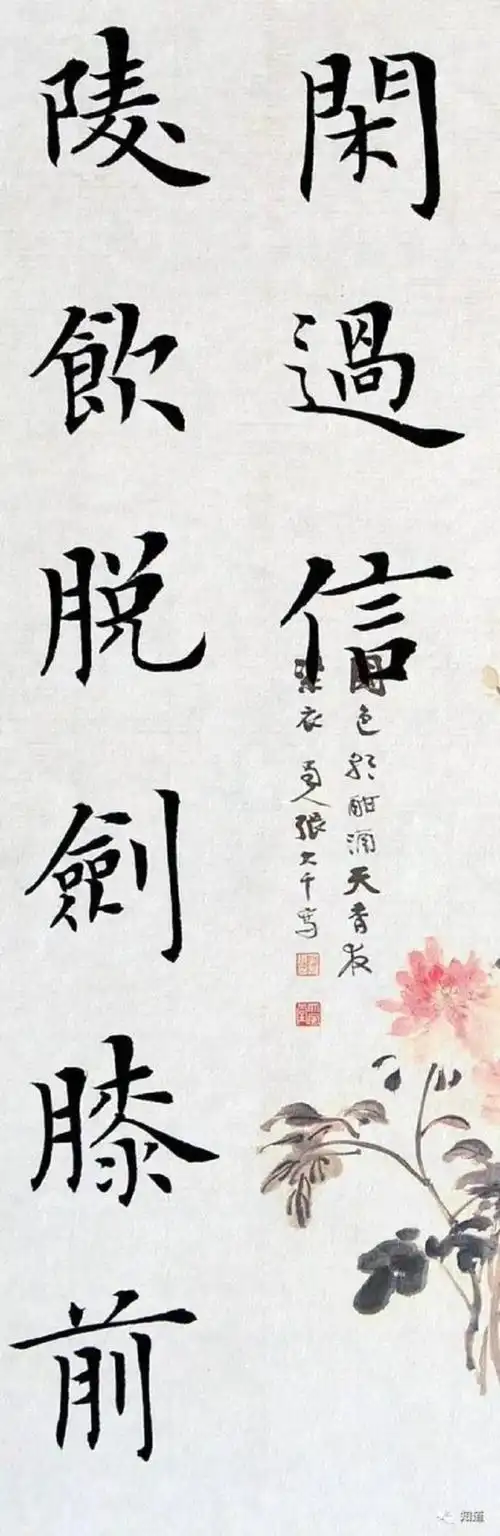 閑過信
陵飲脱劍膝前
國色朝酣酒天香夜
染衣 蜀人張大千寫
知道